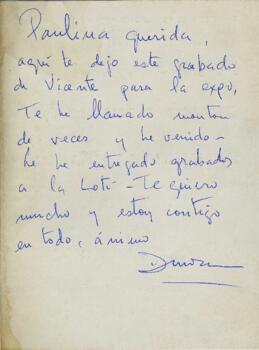 Paulina querida,
aquí te dejo este grabado
de Vicente para la expo,
Te he llamado monton
de veces y he venido-
he he entregado grabados
a la Loti - Te quiero
mucho y estoy contigo
en todo, ánimo